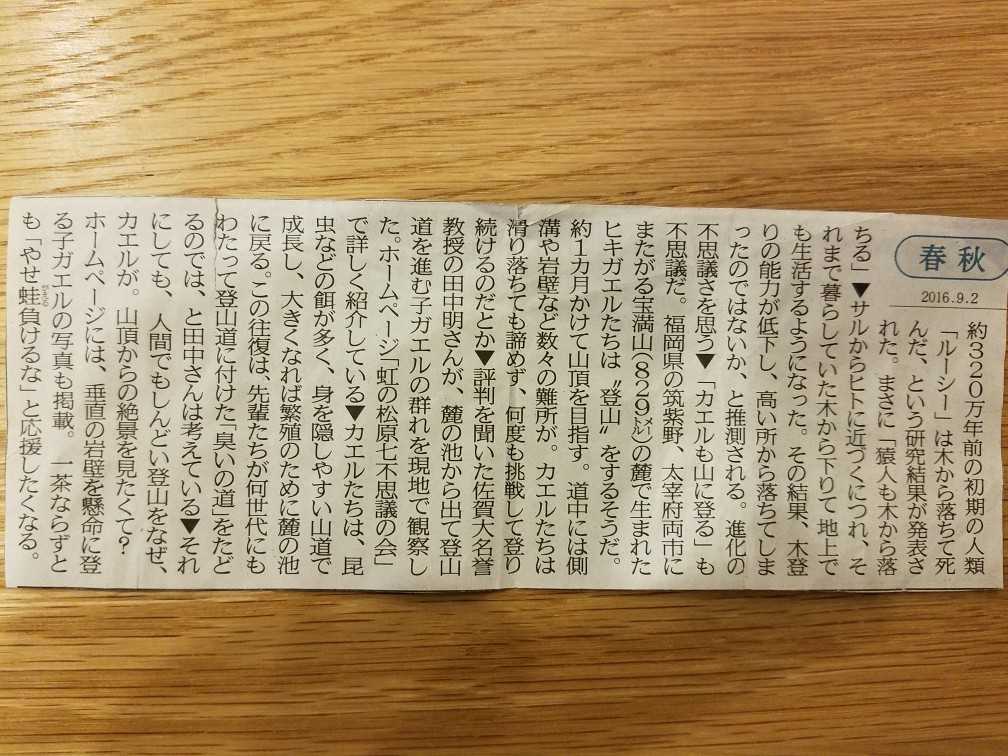 春秋
2016.9.2
約320万年前の初期の人類
「ルーシー」は木から落ちて死
んだ、という研究結果が発表さ
れた。まさに「猿人も木から落
ちる」▼サルからヒトに近づくにつれ、そ
れまで暮らしていた木から下りて地上で
も生活するようになった。その結果、木登
りの能力が低下し、高い所から落ちてしま
ったのではないか、と推測される。進化の
不思議さを思う▼「カエルも山に登る」も
不思議だ。福岡県の筑紫野、太宰府両市に
またがる宝満山(829メートル)の麓で生まれた
ヒキガエルたちは〝登山〟をするそうだ。
約1カ月かけて山頂を目指す。道中には側
溝や岩壁など数々の難所が。カエルたちは
滑り落ちても諦めず、何度も挑戦して登り
続けるのだとか▼評判を聞いた佐賀大名誉
教授の田中明さんが、麓の池から出て登山
道を進む子ガエルの群れを現地で観察し
た。ホームページ「虹の松原七不思議の会」
で詳しく紹介している▼カエルたちは、昆
虫などの餌が多く、身を隠しやすい山道で
成長し、大きくなれば繁殖のために麓の池
に戻る。この往復は、先輩たちが何世代にも
わたって登山道に付けた「臭いの道」をたど
るのでは、と田中さんは考えている▼それ
にしても、人間でもしんどい登山をなぜ、
カエルが。山頂からの絶景を見たくて?
ホームページには、垂直の岩壁を懸命に登
る子ガエルの写真も掲載。一茶ならずと
も「やせ蛙がえる負けるな」と応援したくなる。